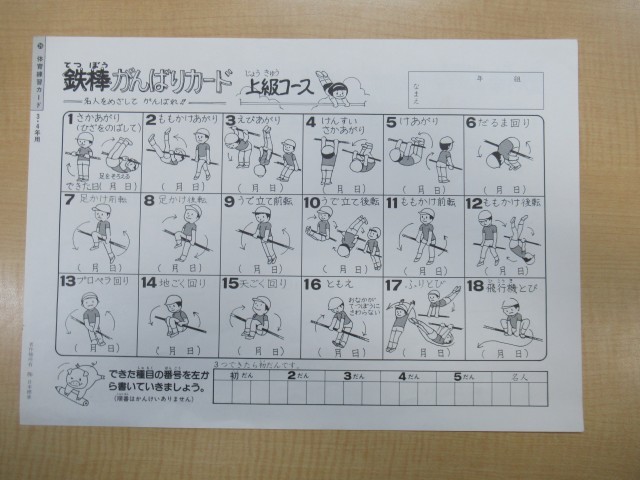 体育練習カード 3・4年用
てつ ぼう
鉄棒がんばりカード
じょう きゅう
上級コース
名人をめざして がんばれ!!
年 組
なまえ
1 さかあがり
(ひざをのばして)
足をそろえる
できた日( 月 日)
2 ももかけあがり
( 月 日)
3 えびあがり
( 月 日)
4 けんすい
さかあがり
( 月 日)
5 けあがり
( 月 日)
6 だるま回り
( 月 日)
7 足かけ前転
( 月 日)
8 足かけ後転
( 月 日)
9 うで立て前転
( 月 日)
10 うで立て後転
( 月 日)
11 ももかけ前転
( 月 日)
12 ももかけ後転
( 月 日)
13 プロペラ回り
( 月 日)
14 地ごく回り
( 月 日)
15 天ごく回り
( 月 日)
16 ともえ
おなかが
てつぼうに
さわらない
( 月 日)
17 ふりとび
( 月 日)
18 飛行機とび
( 月 日)
できた種目の番号を左か
ら書いていきましょう。
(順番はかんけいありません)
3つできたら初だんです。
初だん 2だん 3だん 4だん 5だん 名人